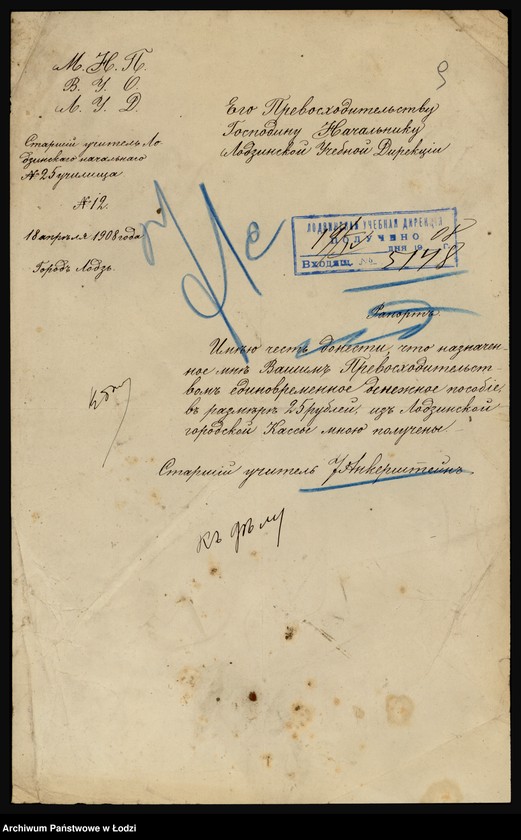 9
М. Н. П.
В. У. О.
Л. У. Д.
Старшiй учитель Ло
дзинскаго начальнаго
№ 25 училища
№ 12.
18 апрѣля 1908 года
Городъ Лодзь.
Его Превосходительству
Господину Начальнику
Лодзинской Учебной Дирекцiи
ЛОДЗИНСКАЯ УЧЕБНАЯ ДИРЕКЦIЯ
ПОЛУЧЕНО
дня 1908 г.
Входящ. № 5178
Рапортъ.
Имѣю честь донести, что назначен-
ное мнѣ Вашимъ Превосходительст
вомъ единовременное денежное пособiе,
въ размѣрѣ 25 рублей, изъ Лодзинской
городской Кассы мною получены
Старшiй учитель Анкерштейнъ
къ дѣлу
Archiwum Państwowe w Łodzi